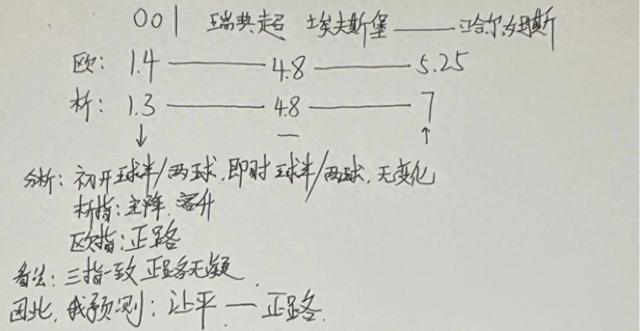 001 瑞典超 埃夫斯堡——哈尔姆斯
欧: 1.4 —— 4.8 —— 5.25
析: 1.3 —— 4.8 —— 7
↓ — ↑
分析: 初开球半/两球, 即时球半/两球, 无变化
析指: 主降, 客升
欧指: 正路
看法: 三指一致 正路无疑.
因此, 我预测: 让平 — 正路.